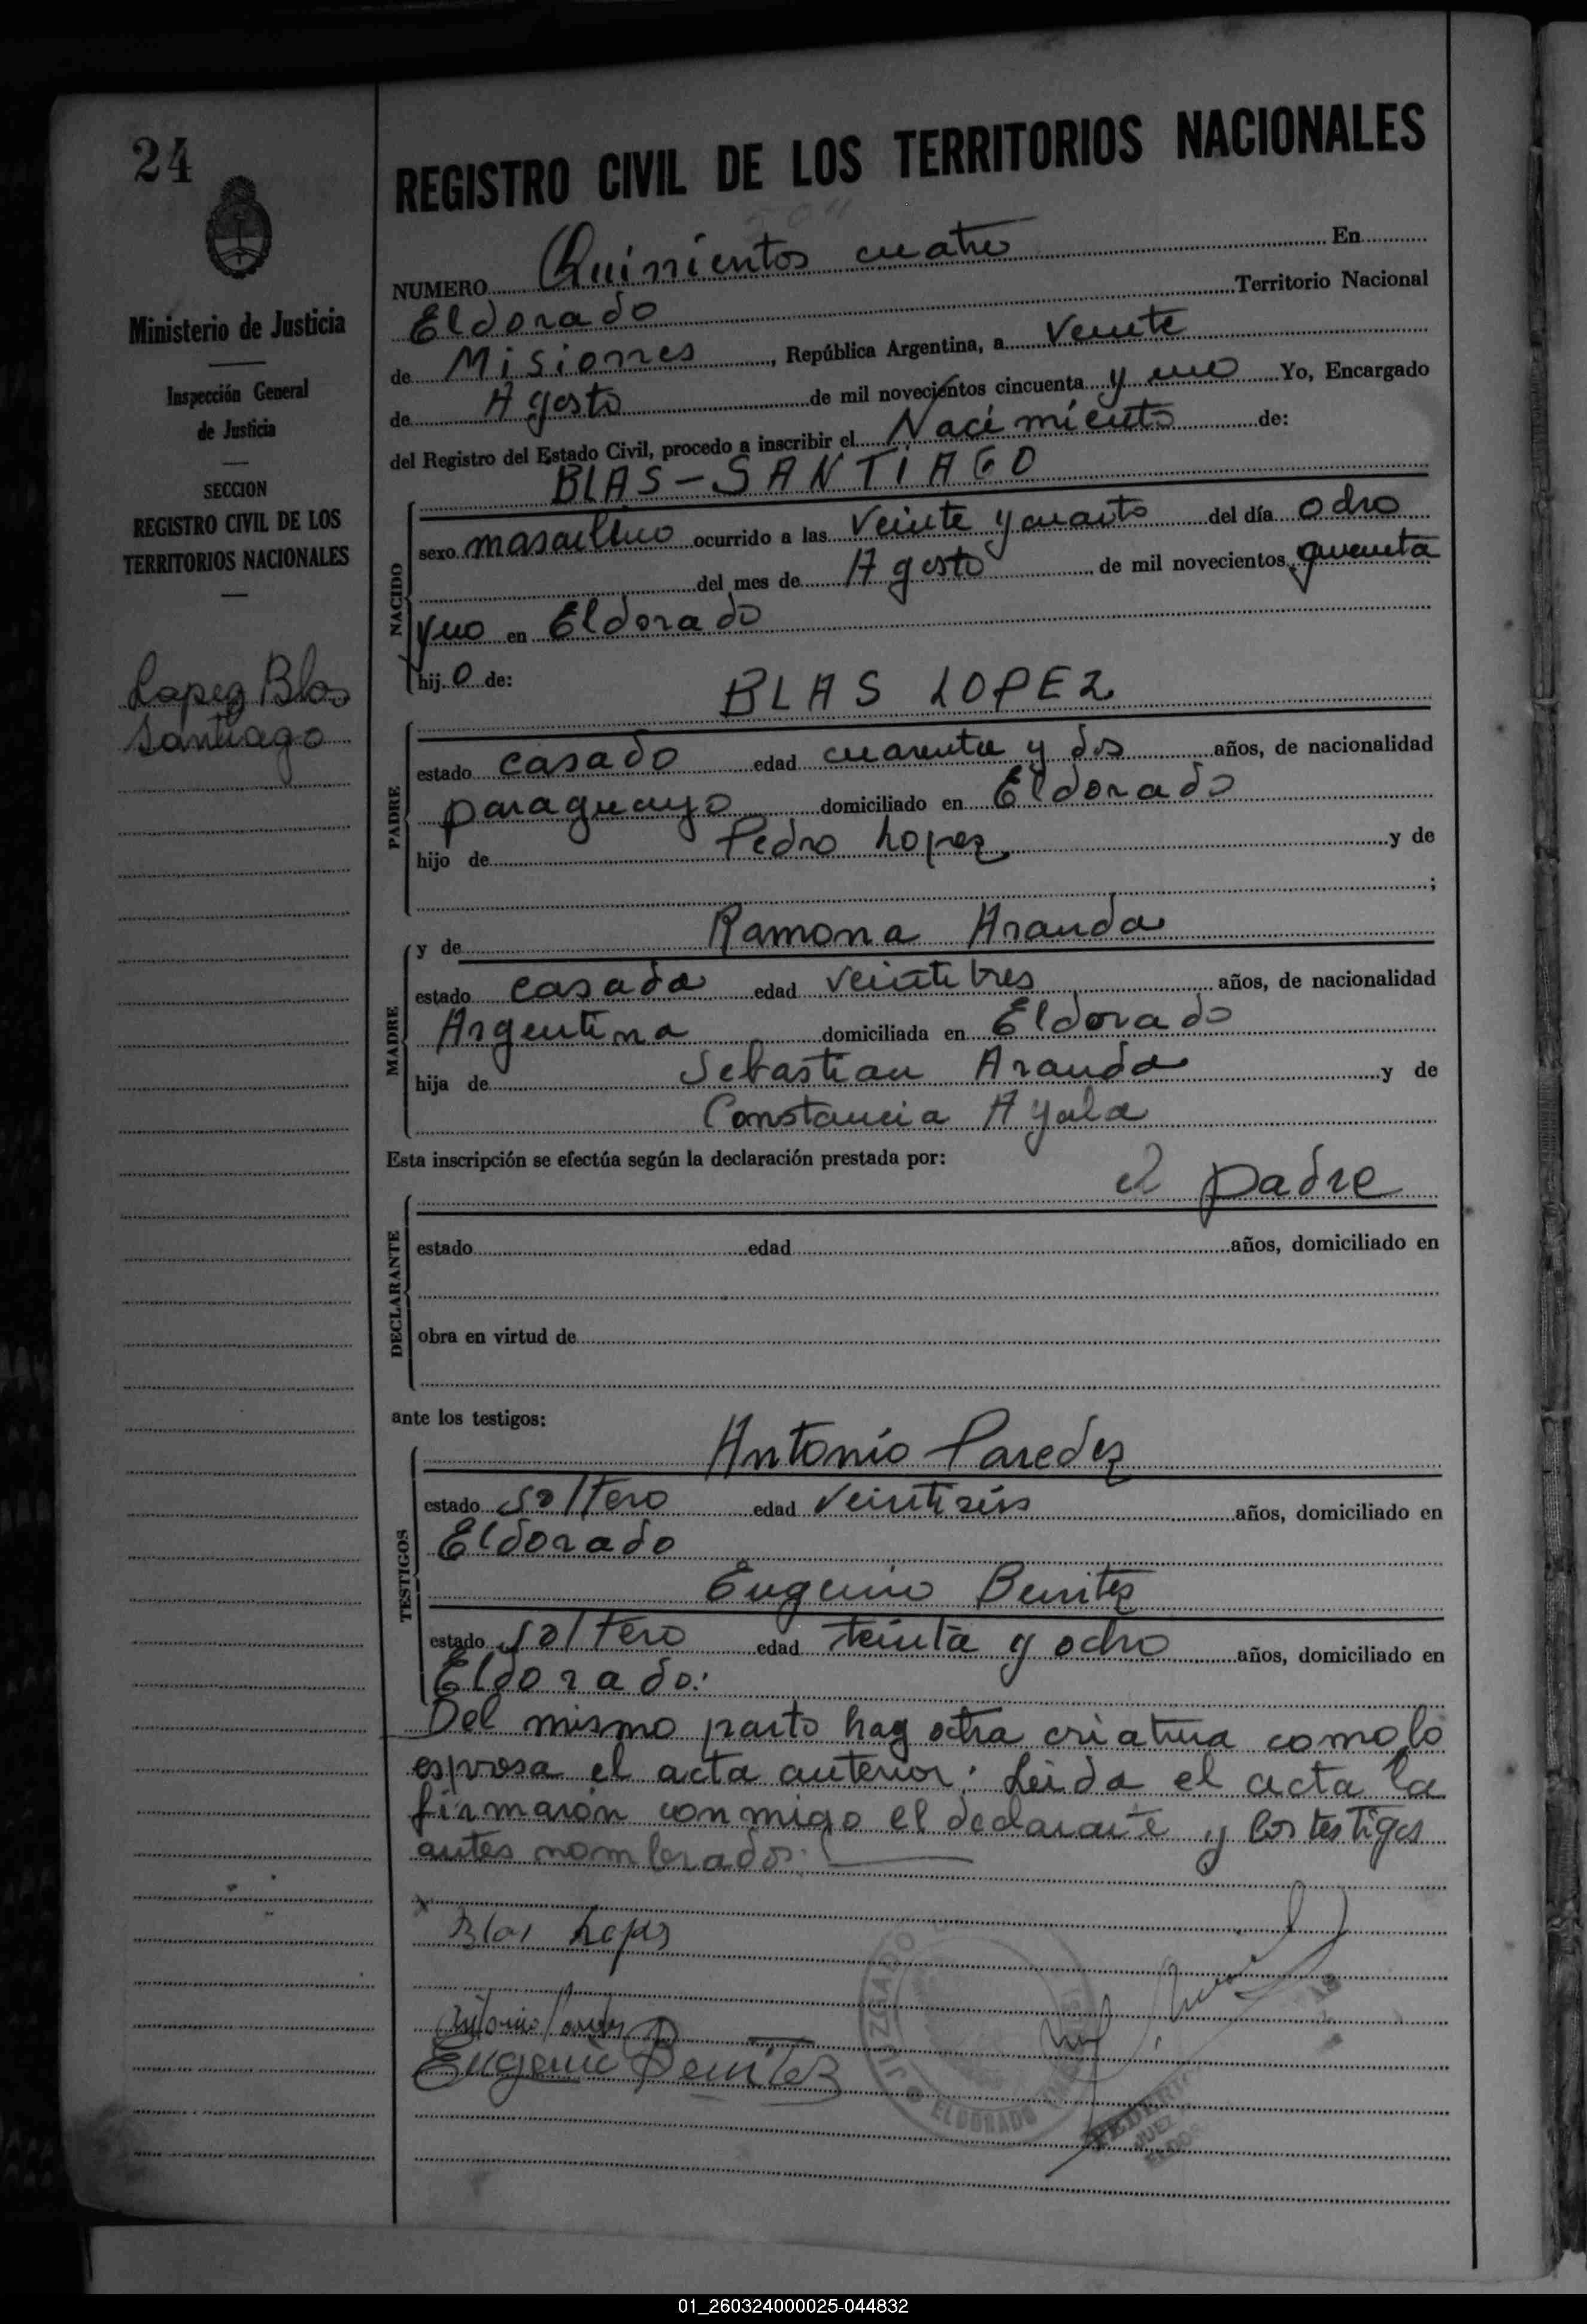 24
REGISTRO CIVIL DE LOS TERRITORIOS NACIONALES
504
NUMERO Quinientos cuatro En
Eldorado Territorio Nacional
de Misiones, República Argentina, a Veinte
de Agosto de mil novecientos cincuenta y uno Yo, Encargado
del Registro del Estado Civil, procedo a inscribir el Nacimiento de:
BLAS-SANTIAGO
NACIDO
sexo masculino ocurrido a las Veinte y cuarto del día ocho
del mes de Agosto de mil novecientos
y uno en Eldorado
hijo de:
Ministerio de Justicia
Inspección General
de Justicia
SECCION
REGISTRO CIVIL DE LOS
TERRITORIOS NACIONALES
Lopez Blas
Santiago
BLAS LOPEZ
PADRE
estado casado edad cuarenta y dos años, de nacionalidad
paraguayo domiciliado en Eldorado
hijo de Pedro Lopez y de
;
y de Ramona Aranda
MADRE
estado casada edad veintitres años, de nacionalidad
Argentina domiciliada en Eldorado
hija de Sebastian Aranda y de
Constancia Ayala
Esta inscripción se efectúa según la declaración prestada por:
el padre
DECLARANTE
estado edad años, domiciliado en
obra en virtud de
ante los testigos:
Antonio Paredez
TESTIGOS
estado soltero edad veintiseis años, domiciliado en
Eldorado
Eugenio Benitez
estado soltero edad teinta y ocho años, domiciliado en
Eldorado.
Del mismo parto hay otra criatura como lo
espresa el acta anterior. Leida el acta la
firmaron conmigo el declarante y los testigos
antes nombrados.
x
Blas Lopez
Antonio Paredez
Eugenio Benitez
JUZGADO
ELDORADO
JUEZ
01_260324000025-044832